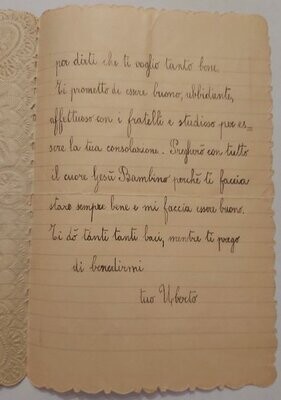 per dirti che ti voglio tanto bene.
Ti prometto di essere buono, ubbidiente,
affettuoso con i fratelli e studioso per es=
sere la tua consolazione. Pregherò con tutto
il cuore Gesù Bambino perchè ti faccia
stare sempre bene e mi faccia essere buono.
Ti dò tanti tanti baci, mentre ti prego
di benedirmi
tuo Uberto